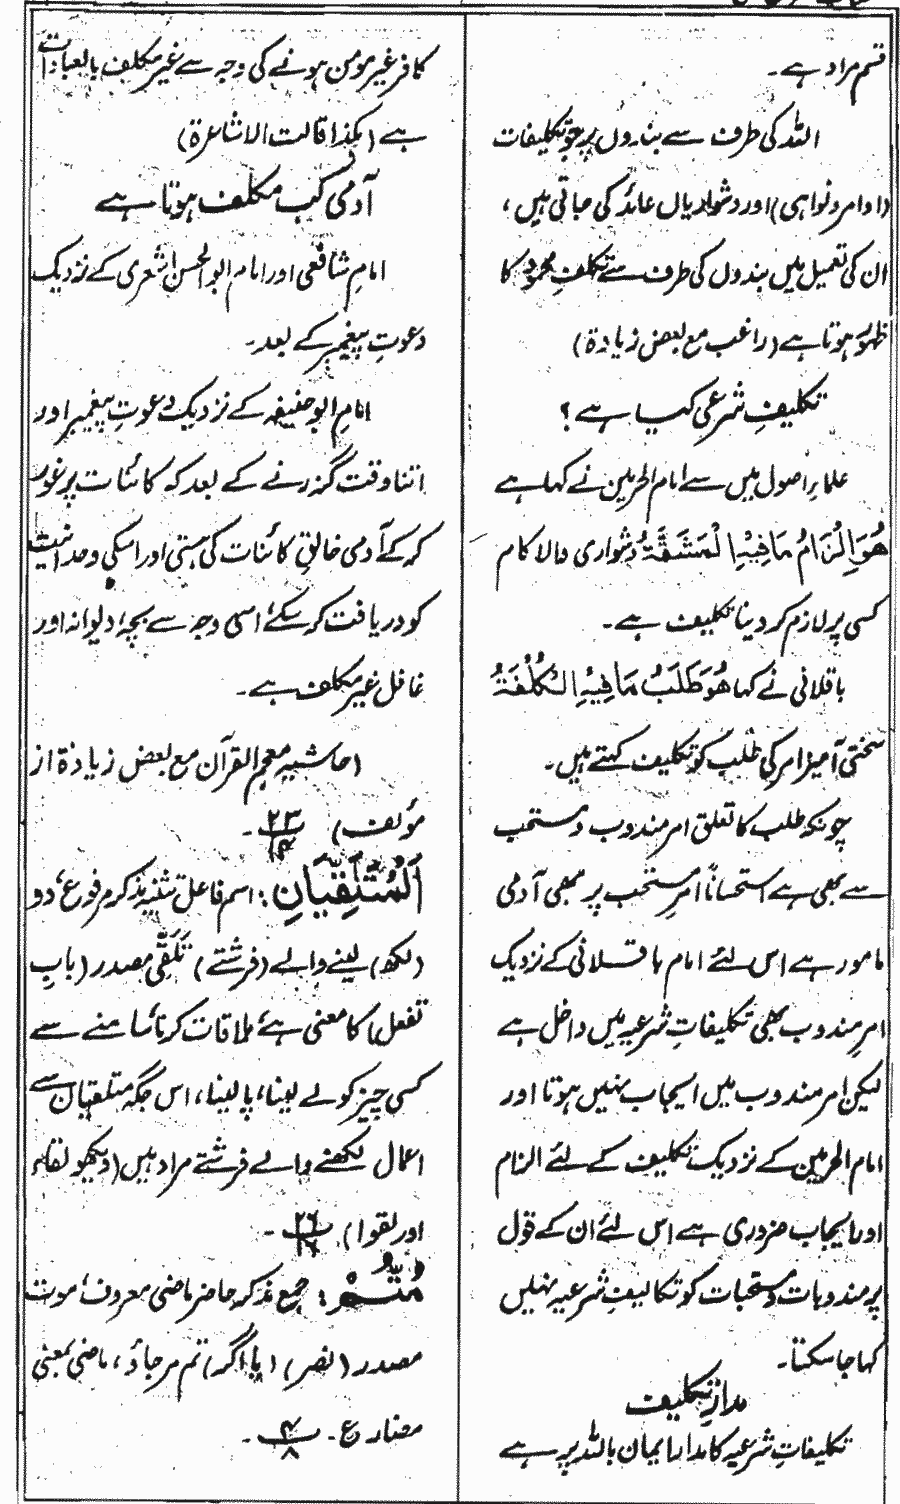 قسم مراد ہے۔
اللہ کی طرف سے بندوں پر جو تکلیفات
(اوامر و نواہی) اور دشواریاں عائد کی جاتی ہیں،
ان کی تعمیل میں بندوں کی طرف سے تکلفِ محمود کا
ظہور ہوتا ہے (راغب مع بعض زیادۃ)
تکلیفِ شرعی کیا ہے؟
علماءِ اصول میں سے امام الحرمین نے کہا ہے
هُوَ اِلْزَامُ مَا فِيْهِ الْمَشَقَّةُ دشواری والا کام
کسی پر لازم کر دینا تکلیف ہے۔
باقلانی نے کہا هُوَ طَلَبُ مَا فِيْهِ الْكُلْفَةُ
سختی آمیز امر کی طلب کو تکلیف کہتے ہیں۔
چونکہ طلب کا تعلق امر مندوب و مستحب
سے بھی ہے استحساناً امرِ مستحب پر بھی آدمی
مامور ہے اس لئے امام باقلانی کے نزدیک
امرِ مندوب بھی تکلیفاتِ شرعیہ میں داخل ہے
لیکن امر مندوب میں ایجاب نہیں ہوتا اور
امام الحرمین کے نزدیک تکلیف کے لئے الزام
اور ایجاب ضروری ہے اس لئے ان کے قول
پر مندوبات و مستحبات کو تکالیفِ شرعیہ نہیں
کہا جا سکتا۔
مدارِ تکلیف
تکلیفاتِ شرعیہ کا مدار ایمان باللہ پر ہے
کافر غیر مومن ہونے کی وجہ سے غیر مکلف بالعبادات
ہے (ہکذا قالت الاشاعرۃ)
آدمی کب مکلف ہوتا ہے
امامِ شافعی اور امام ابوالحسن اشعری کے نزدیک
دعوتِ پیغمبر کے بعد۔
امامِ ابو حنیفہ کے نزدیک دعوتِ پیغمبر اور
اتنا وقت گزرنے کے بعد کہ کائنات پر غور
کر کے آدمی خالقِ کائنات کی ہستی اور اسکی وحدانیت
کو دریافت کر سکے، اسی وجہ سے بچہ، دیوانہ اور
غافل غیر مکلف ہے۔
(حاشیہ معجم القرآن مع بعض زیادۃ از
مؤلف) ۲۳/۴۔
اَلْمُتَلَقِّيَانِ: اسم فاعل تثنیہ مذکر مرفوع، دو
(لکھ) لینے والے (فرشتے) تَلَقِّی مصدر (بابِ
تفعل) کا معنی ہے ملاقات کرنا، سامنے سے
کسی چیز کو لے لینا، پا لینا، اس جگہ متلقیان سے
اعمال لکھنے والے فرشتے مراد ہیں (دیکھو لقاء
اور لقوا) ۲۶/۱۶۔
مُتُّمْ: جمع مذکر حاضر ماضی معروف، موت
مصدر (نصر) (یا، اگر) تم مر جاؤ، ماضی بمعنی
مضارع۔ ۴/۸۔